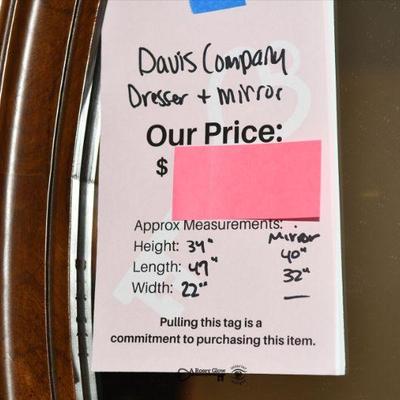 Davis Company
Dresser + Mirror
Our Price:
$
Approx Measurements:
Mirror
Height: 34" 40"
Length: 47" 32"
Width: 22" —
Pulling this tag is a
commitment to purchasing this item.
A Rosey Glow